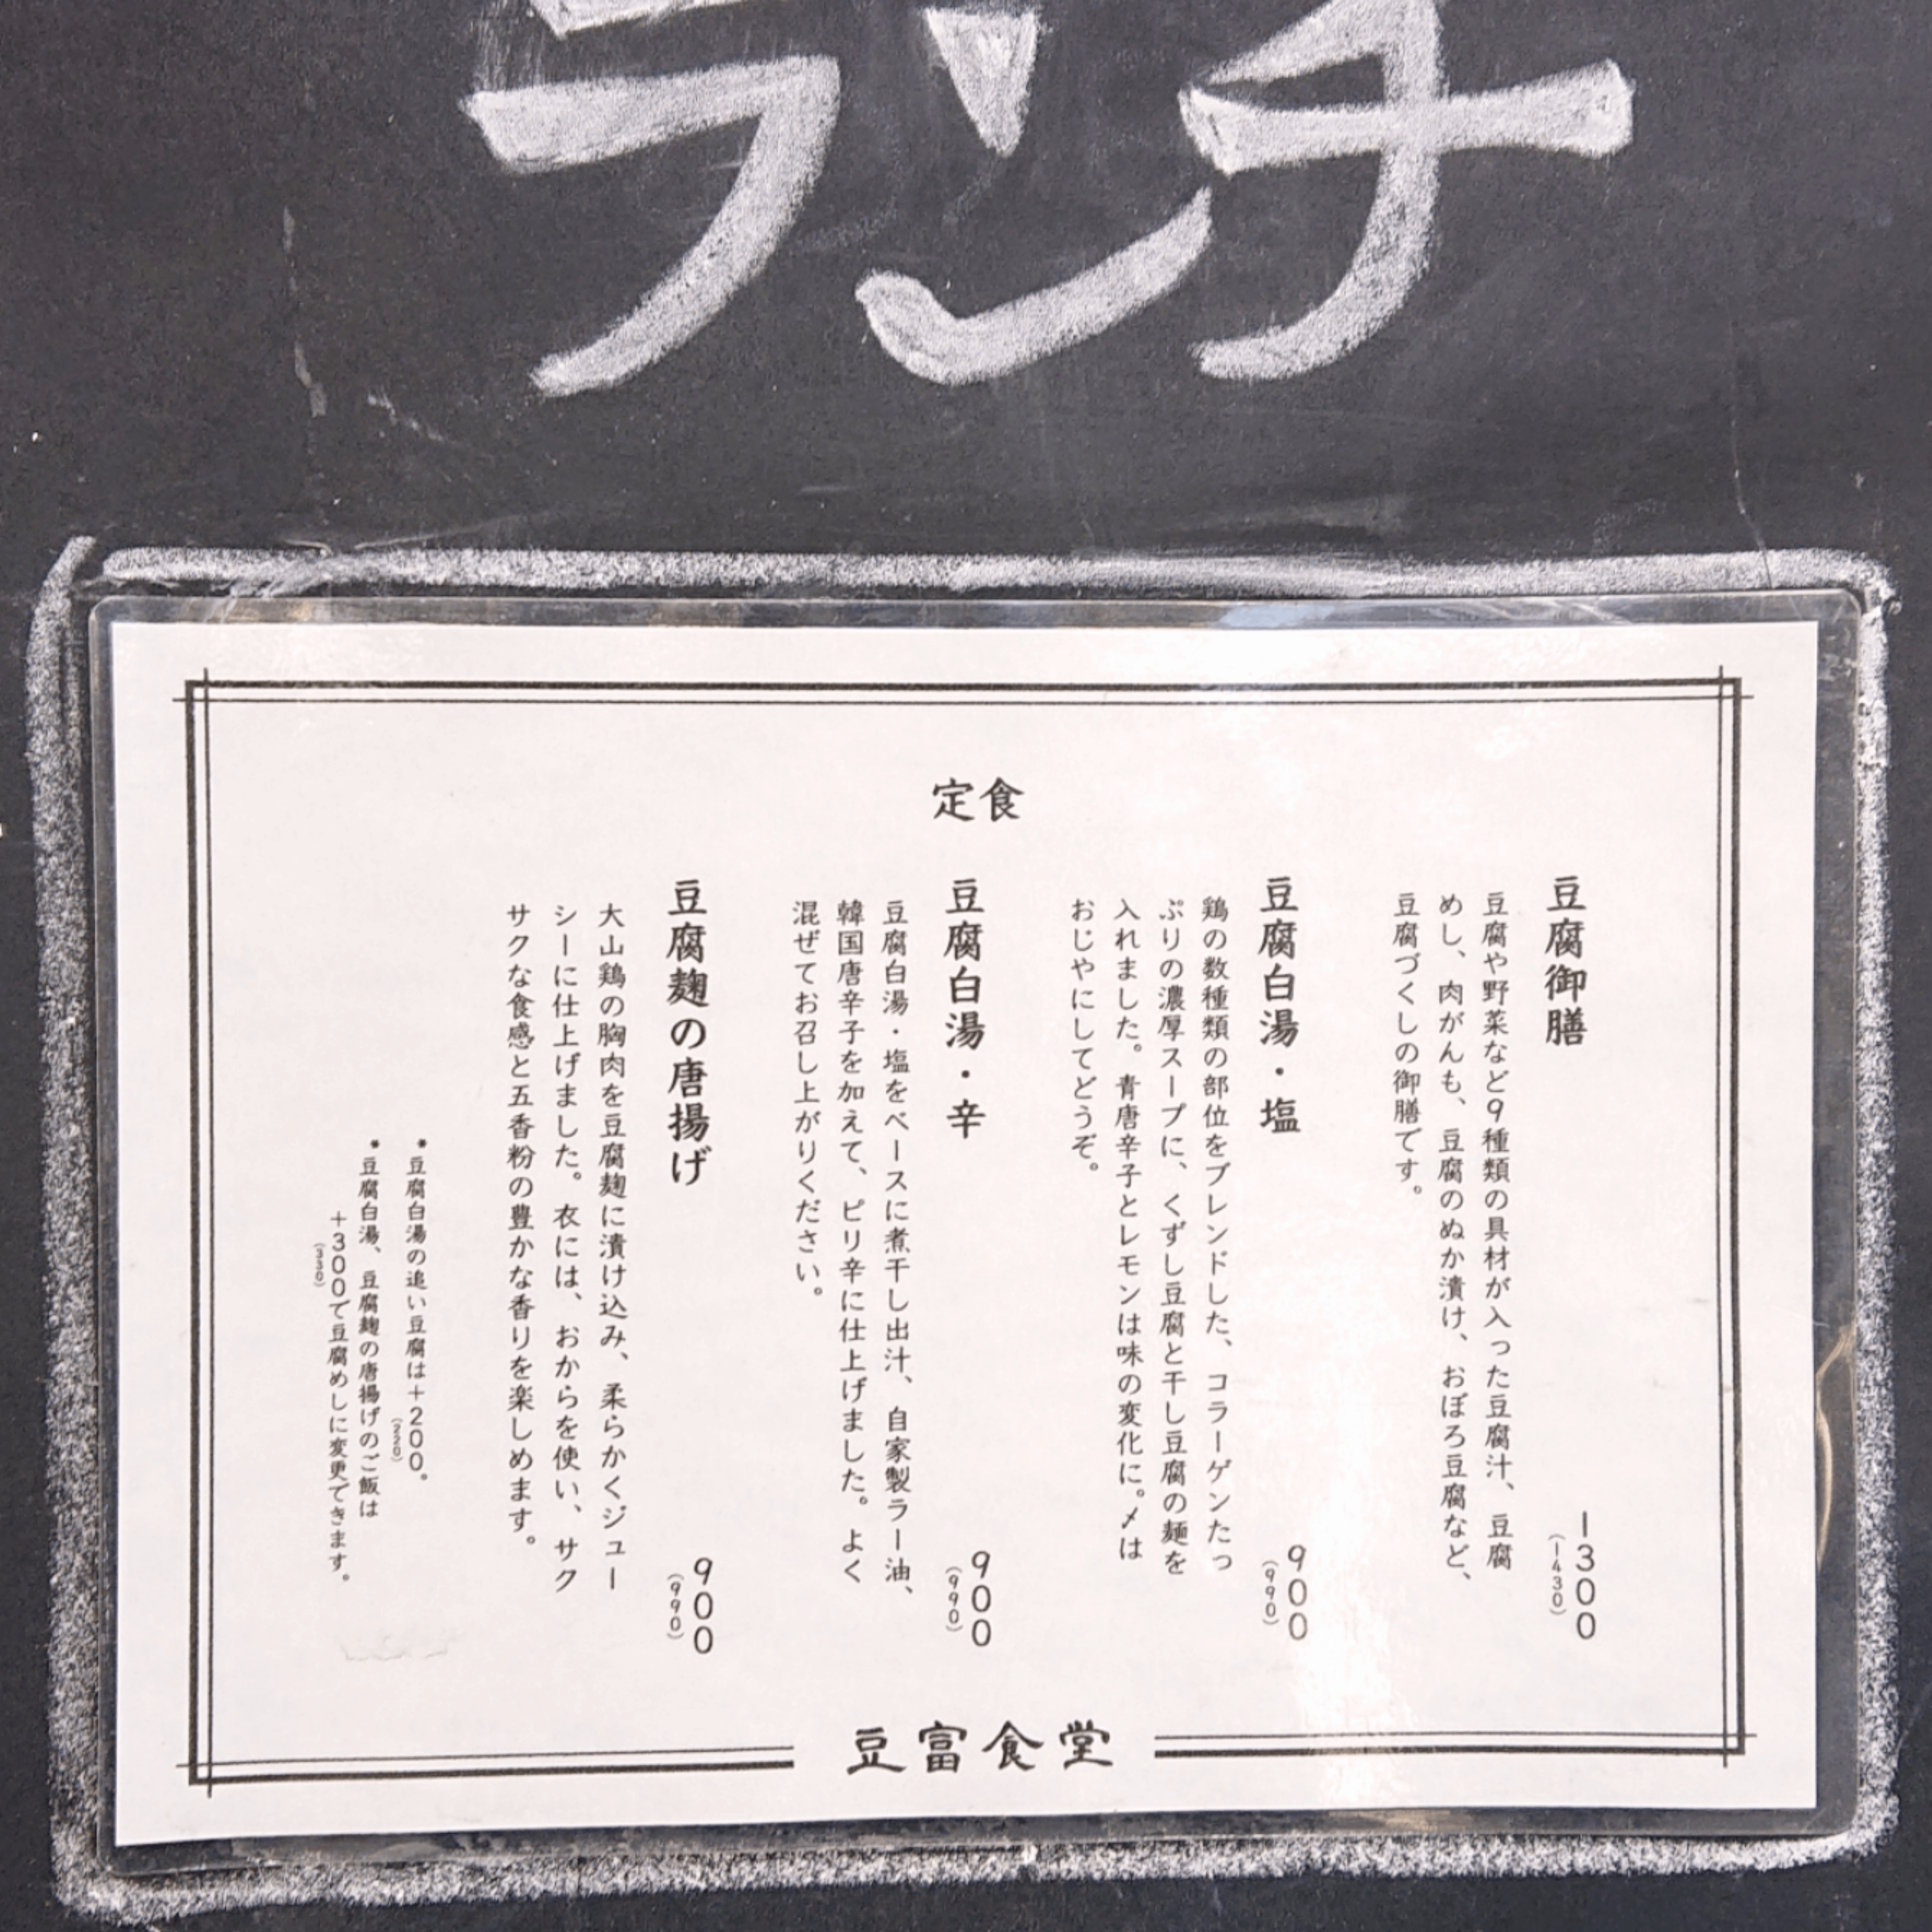 ランチ
定食
豆腐御膳
豆腐や野菜など9種類の具材が入った豆腐汁、豆腐
めし、肉がんも、豆腐のぬか漬け、おぼろ豆腐など、
豆腐づくしの御膳です。
1300
(1430)
豆腐白湯・塩
鶏の数種類の部位をブレンドした、コラーゲンたっ
ぷりの濃厚スープに、くずし豆腐と干し豆腐の麺を
入れました。青唐辛子とレモンは味の変化に。〆は
おじやにしてどうぞ。
900
(990)
豆腐白湯・辛
豆腐白湯・塩をベースに煮干し出汁、自家製ラー油、
韓国唐辛子を加えて、ピリ辛に仕上げました。よく
混ぜてお召し上がりください。
900
(990)
豆腐麹の唐揚げ
大山鶏の胸肉を豆腐麹に漬け込み、柔らかくジュー
シーに仕上げました。衣には、おからを使い、サク
サクな食感と五香粉の豊かな香りを楽しめます。
900
(990)
*豆腐白湯の追い豆腐は+200。
(220)
*豆腐白湯、豆腐麹の唐揚げのご飯は
+300で豆腐めしに変更できます。
(330)
豆富食堂